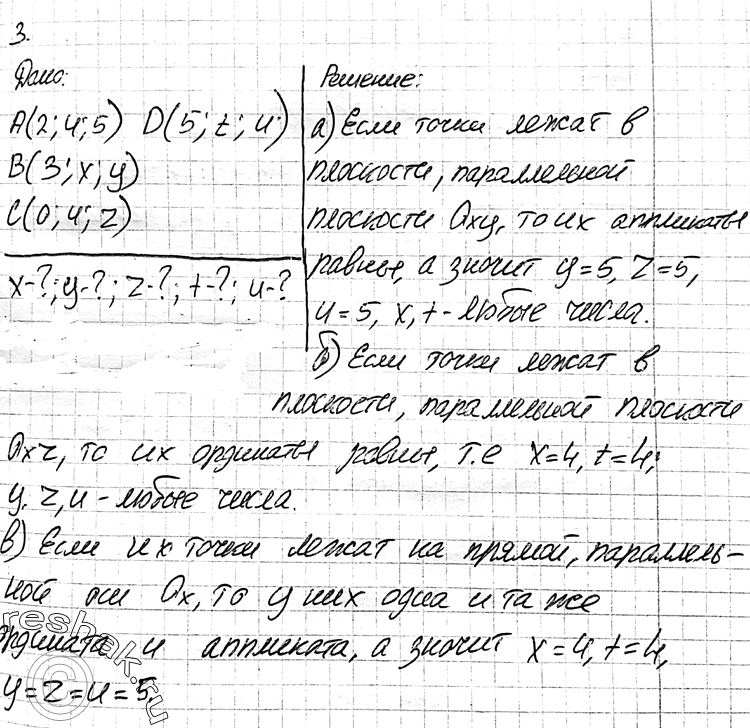 3.
Дано:
A(2; 4; 5) D(5; t; u)
B(3; x; y)
C(0; 4; z)
x-?; y-?; z-?; t-?; u-?
Решение:
а) Если точки лежат в
плоскости, параллельной
плоскости Oxy, то их аппликаты
равны, а значит y=5, z=5,
u=5, x, t - любые числа.
б) Если точки лежат в
плоскости, параллельной плоскости
Oxz, то их ординаты равны, т.е x=4, t=4;
y, z, u - любые числа.
в) Если их точки лежат на прямой, параллель-
ной оси Ox, то у них одна и та же
ордината и аппликата, а значит x=4, t=4,
y=z=u=5.
©reshak.ru